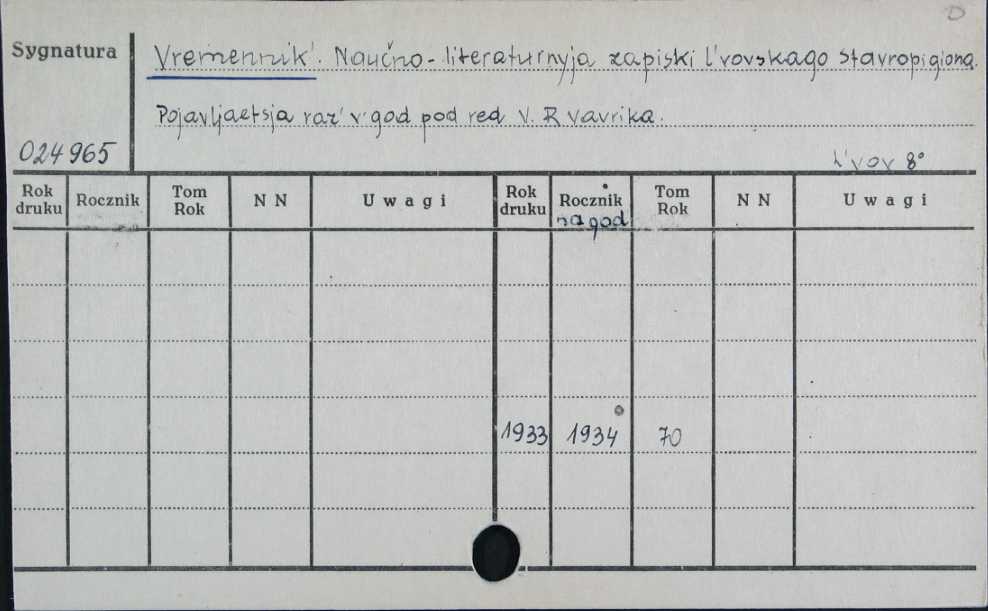 D
Sygnatura
Vremennik'. Naučno-literaturnyja zapiski L'vovskago Stavropigiona.
Pojavljaetsja raz' v god pod red V. R Vavrika.
024965
L'vov 8°
Rok druku Rocznik Tom Rok N N Uwagi Rok druku Rocznik na god Tom Rok N N Uwagi
1933 1934 70